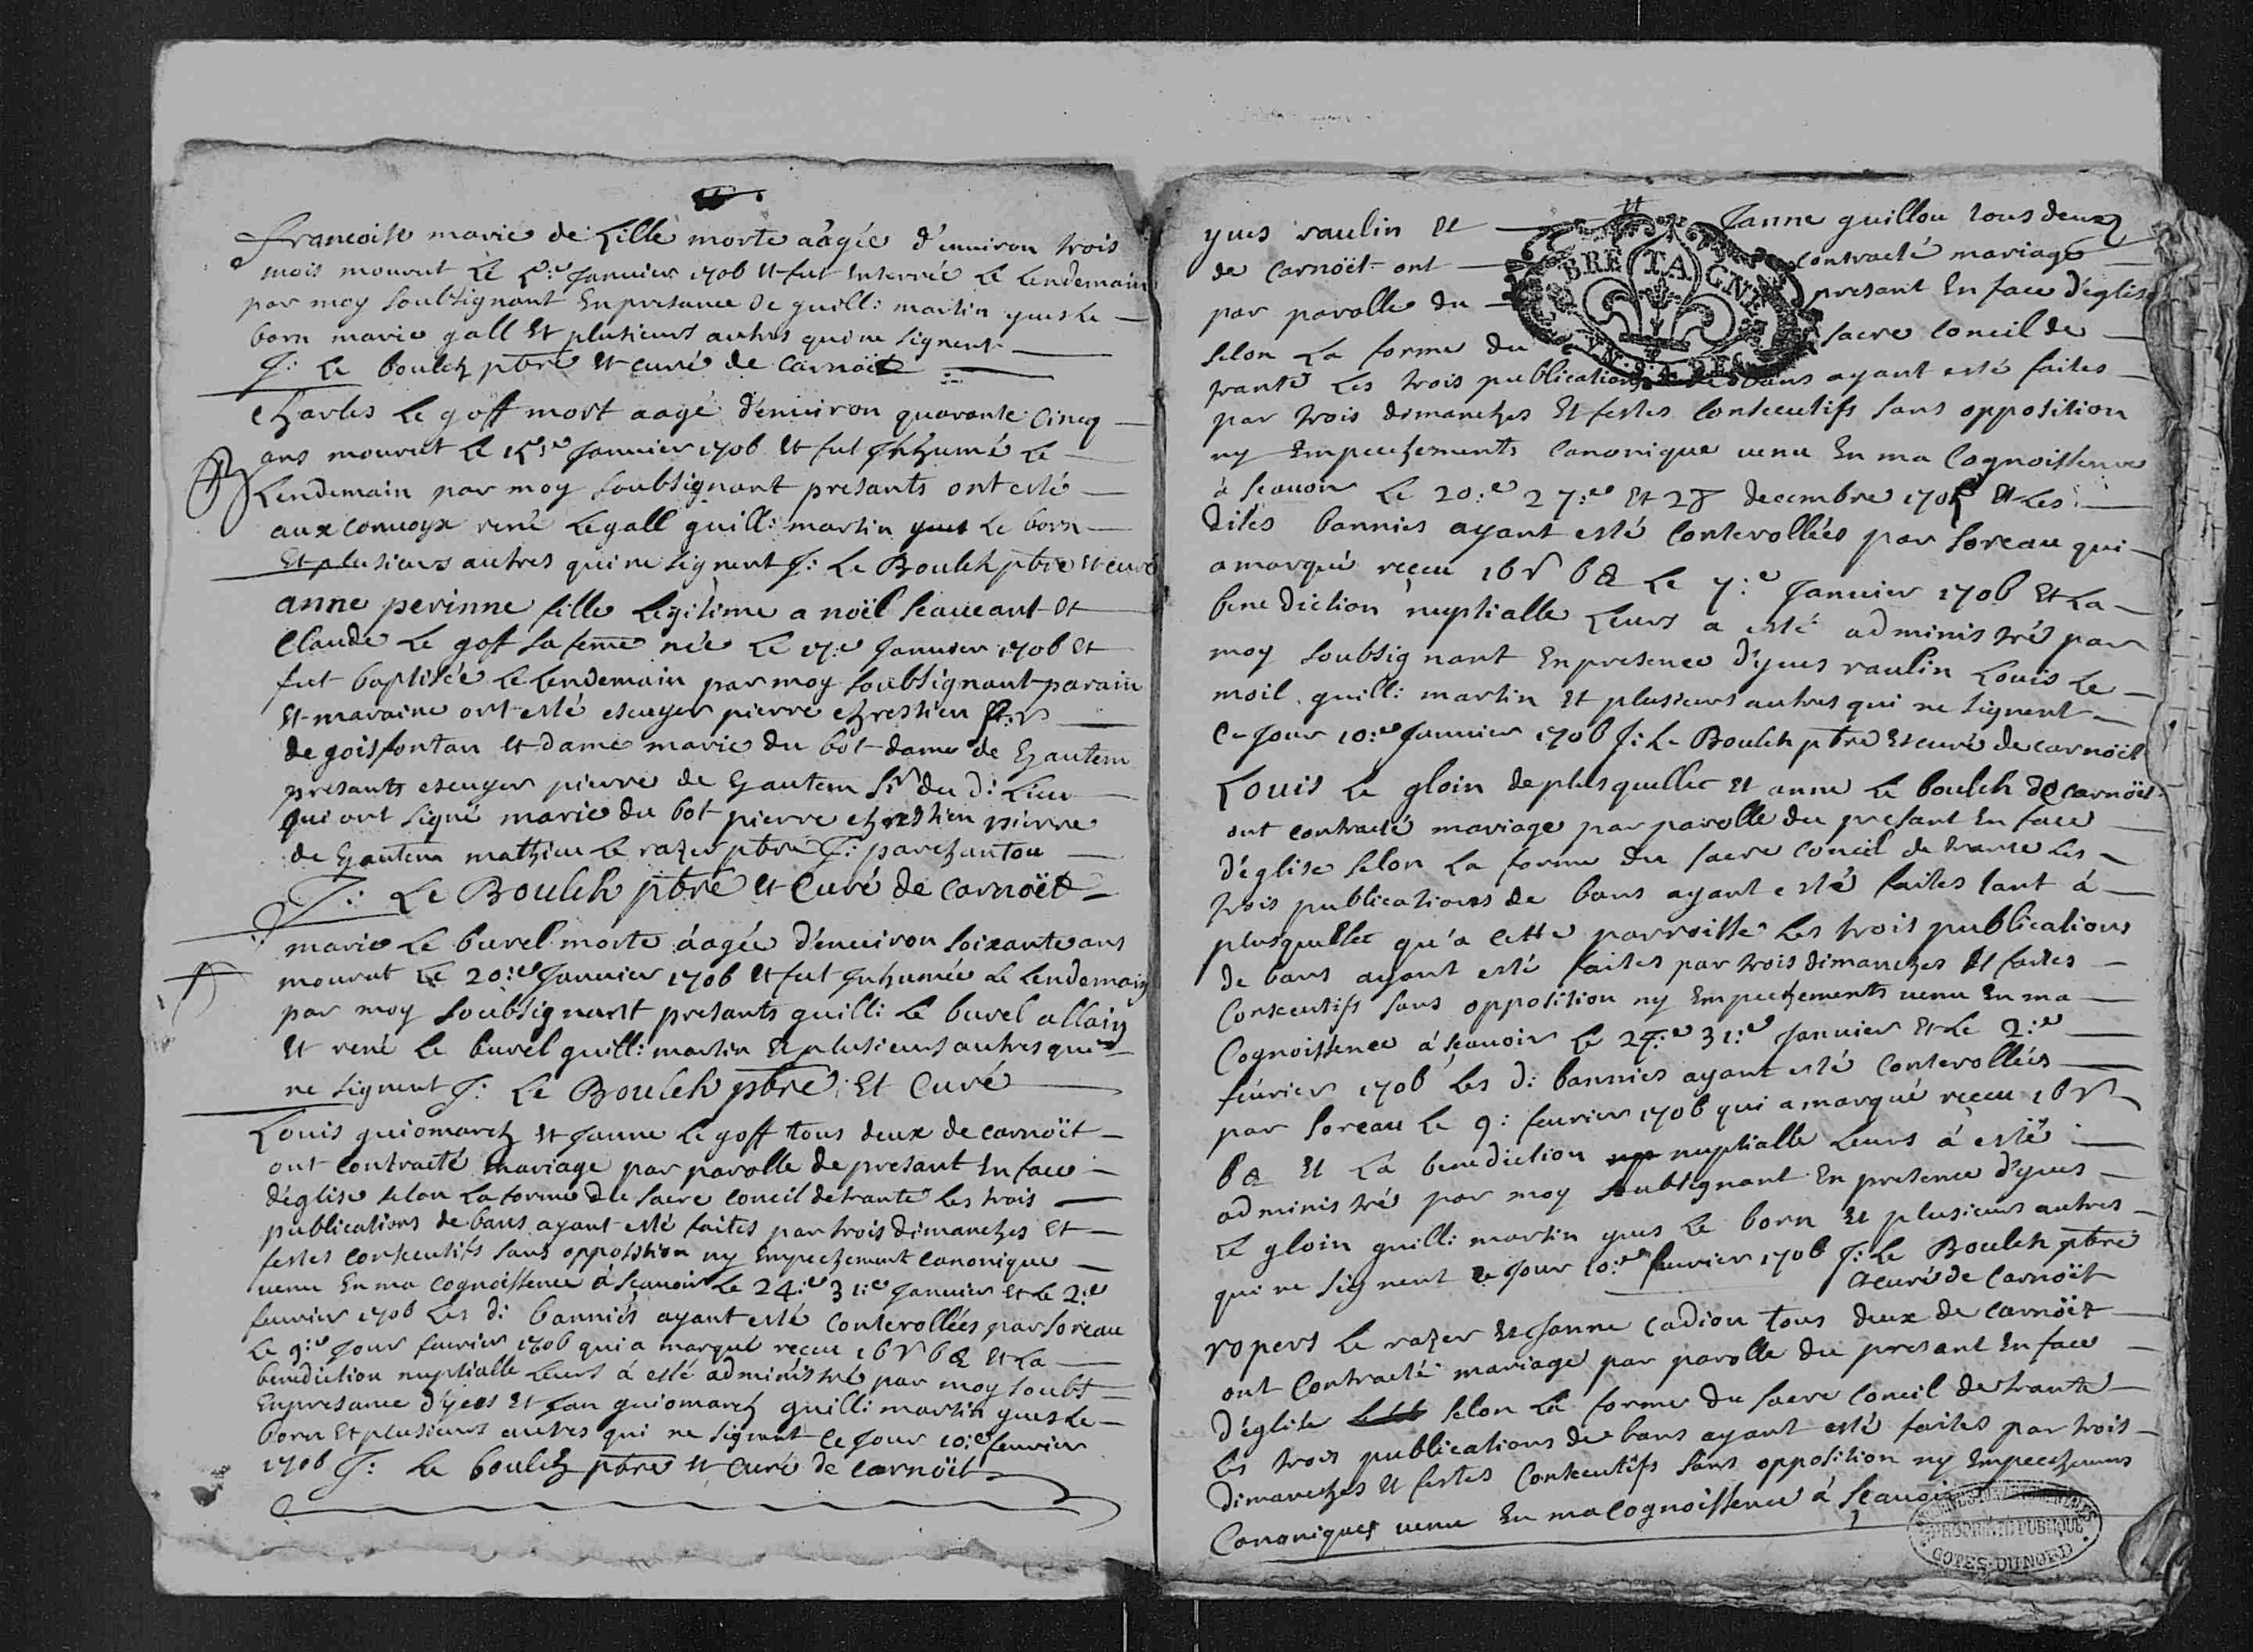 francoise marie de Lille morte aagée d'enuiron trois
mois mourut Le 5:e Januier 1706 Et fut Enterrée Le Lendemain
par moy soubsignant En presance de guill: martin yues Le
born marie gall Et plusieurs autres qui ne signent
J: Le boulch ptre Et curé de carnoët
charles Le goff mort aagé d'enuiron quarante cincq
ans mourut Le 15:e Januier 1706 Et fut Inhumé Le
Lendemain par moy soubsignant presants ont esté
aux conuoyx rené Legall guill: martin yues Le born
Et plusieurs autres qui ne signent J: Le Boulch ptre Et curé
anne perinne fille Legitime a noël Leaueant Et
Claude Le goff sa feme née Le 17:e Januier 1706 Et
fut baptisée Le Lendemain par moy soubsignant parain
Et maraine ont esté escuyer pierre chrestien Sr
de goisfontan Et dame marie du bot dame de Gautem
presants escuyer pierre de Gautem Sr du d: Lieu
qui ont signé marie du bot pierre chrestien pierre
de Gautem mathieu Le razer ptre J: parchantou
J: Le Boulch ptre Et Curé de carnoët
marie Le burel morte aagée d'enuiron soixante ans
mourut Le 20:e Januier 1706 Et fut Inhumée Le Lendemain
par moy soubsignant presants guill: Le burel allain
Et rené Le burel guill: martin Et plusieurs autres qui
ne signent J: Le Boulch ptre Et Curé
Louis guiomarch Et Janne Le goff tous deux de carnoët
ont contracté mariage par parolle de presant En face
d'églize selon La forme du sacre conseil de trante Les trois
publications de bans ayant esté faites par trois dimanches Et
festes consecutifs sans opposition ny Empechemant canonique
uenu En ma cognoissence á scauoir Le 24:e 31:e Januier Et Le 2:e
feurier 1706 Les d: banniés ayant esté conterollées par Soreau
Le 9:e Jour feurier 1706 qui a marqué reçeu 16 s 6 d Et La
benediction nuptialle Leurs á esté administré par moy soubs
En presance d'yues Et Jan guiomarch guill: martin yues Le
born Et plusieurs autres qui ne signent Ce Jour 10:e feurier
1706 J: Le boulch ptre Et Curé de carnoët
yues raulin Et Janne guillou tous deux
de carnoët ont contracté mariage
par parolle du presant En face d'églize
selon La forme du sacre conseil de
trante Les trois publications de bans ayant esté faites
par trois dimanches Et festes consecutifs sans opposition
ny Empechements canonique uenu En ma Cognoissence
á scauoir Le 20:e 27:e Et 28 decembre 1705 Et Les
dites bannies ayant esté conterollées par soreau qui
a marqué reçeu 16 s 6 d Le 7:e Januier 1706 Et La
benediction nuptialle Leurs a esté administrés par
moy soubsignant En presence d'yues raulin Louis Le
moil guill: martin Et plusieurs autres qui ne signent
Ce Jour 10:e Januier 1706 J: Le Boulch ptre Et curé de carnoët
Louis Le gloin de plusquellec Et anne Le boulch de carnoët
ont contracté mariage par parolle du presant En face
d'églize selon La forme du sacre conseil de trante Les
trois publications de bans ayant esté faites tant á
plusquellec qu'a cette parroisse Les trois publications
de bans ayant esté faites par trois dimanches Et faites
Consecutifs sans opposition ny Empechements uenu En ma
Cognoissence á scauoir Le 24:e 31:e Januier Et Le 2:e
féurier 1706 Les d: bannies ayant esté conterollées
par Soreau Le 9: feurier 1706 qui a marqué reçeu 16 s
6 d Et La benediction nuptialle Leurs á esté
administré par moy soubsignant En presence d'yues
Le gloin guill: martin yues Le born Et plusieurs autres
qui ne signent Ce Jour 10:e feurier 1706 J: Le Boulch ptre
Et curé de Carnoët
ropers Le razer Et Janne Cadiou tous deux de carnoët
ont Contracté mariage par parolle du presant En face
d'églize selon La forme du sacre Conseil de trante
Les trois publications de bans ayant esté faites par trois
dimanches Et festes Consecutifs sans opposition ny Empechemens
Canoniques uenu En ma Cognoissence á scauoir
BRETAGNE
PROPRIÉTÉ PUBLIQUE
COTES-DU-NORD